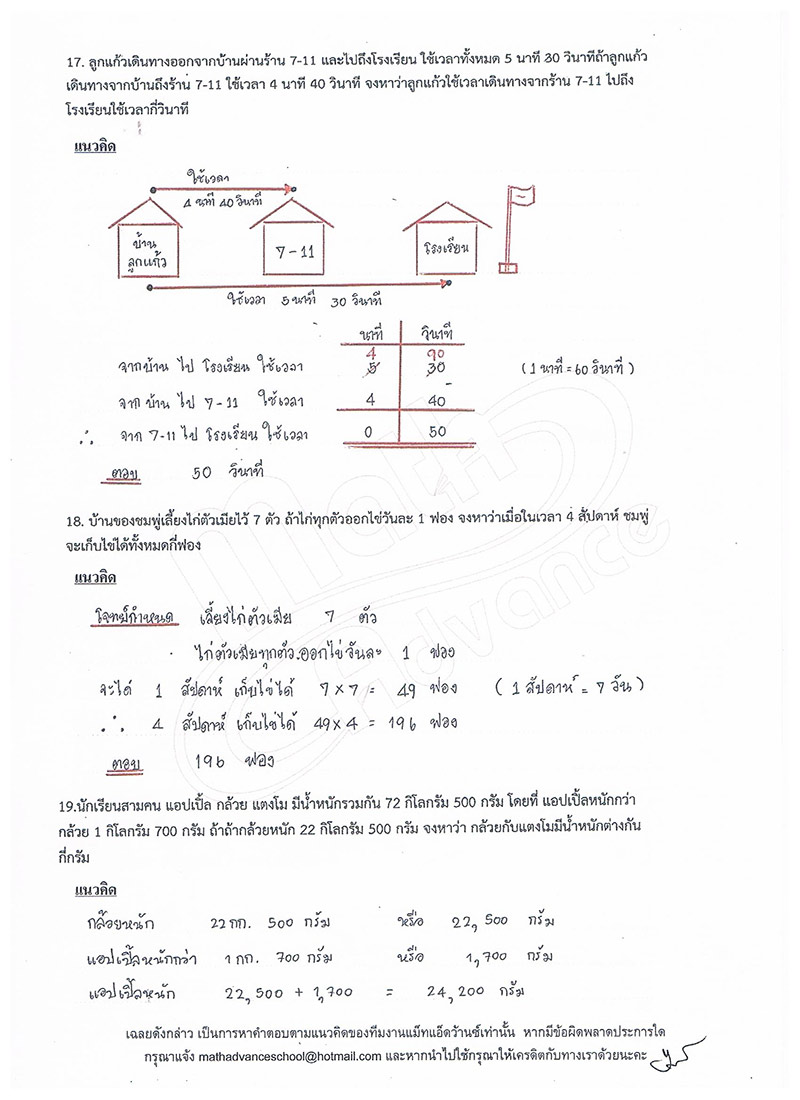 17. ลูกแก้วเดินทางออกจากบ้านผ่านร้าน 7-11 และไปถึงโรงเรียน ใช้เวลาทั้งหมด 5 นาที 30 วินาทีถ้าลูกแก้ว
เดินทางจากบ้านถึงร้าน 7-11 ใช้เวลา 4 นาที 40 วินาที จงหาว่าลูกแก้วใช้เวลาเดินทางจากร้าน 7-11 ไปถึง
โรงเรียนใช้เวลากี่วินาที
แนวคิด
ใช้เวลา
4 นาที 40 วินาที
บ้าน
ลูกแก้ว
7-11
โรงเรียน
ใช้เวลา 5 นาที 30 วินาที
นาที วินาที
4 90
จากบ้าน ไป โรงเรียน ใช้เวลา 5 30 (1 นาที = 60 วินาที)
-
จาก บ้าน ไป 7-11 ใช้เวลา 4 40
∴ จาก 7-11 ไป โรงเรียน ใช้เวลา 0 50
ตอบ 50 วินาที
18. บ้านของชมพู่เลี้ยงไก่ตัวเมียไว้ 7 ตัว ถ้าไก่ทุกตัวออกไข่วันละ 1 ฟอง จงหาว่าเมื่อในเวลา 4 สัปดาห์ ชมพู่
จะเก็บไข่ได้ทั้งหมดกี่ฟอง
แนวคิด
โจทย์กำหนด เลี้ยงไก่ตัวเมีย 7 ตัว
ไก่ตัวเมียทุกตัวออกไข่วันละ 1 ฟอง
จะได้ 1 สัปดาห์ เก็บไข่ได้ 7 × 7 = 49 ฟอง (1 สัปดาห์ = 7 วัน)
∴ 4 สัปดาห์ เก็บไข่ได้ 49 × 4 = 196 ฟอง
ตอบ 196 ฟอง
19.นักเรียนสามคน แอปเปิ้ล กล้วย แตงโม มีน้ำหนักรวมกัน 72 กิโลกรัม 500 กรัม โดยที่ แอปเปิ้ลหนักกว่า
กล้วย 1 กิโลกรัม 700 กรัม ถ้าถ้ากล้วยหนัก 22 กิโลกรัม 500 กรัม จงหาว่า กล้วยกับแตงโมมีน้ำหนักต่างกัน
กี่กรัม
แนวคิด
กล้วยหนัก 22 กก. 500 กรัม หรือ 22,500 กรัม
แอปเปิ้ลหนักกว่า 1 กก. 700 กรัม หรือ 1,700 กรัม
แอปเปิ้ลหนัก 22,500 + 1,700 = 24,200 กรัม
เฉลยดังกล่าว เป็นการหาคำตอบตามแนวคิดของทีมงานแม็ทแอ็ดว้านซ์เท่านั้น หากมีข้อผิดพลาดประการใด
กรุณาแจ้ง mathadvanceschool@hotmail.com และหากนำไปใช้กรุณาให้เครดิตกับทางเราด้วยนะคะ
Math
Advance